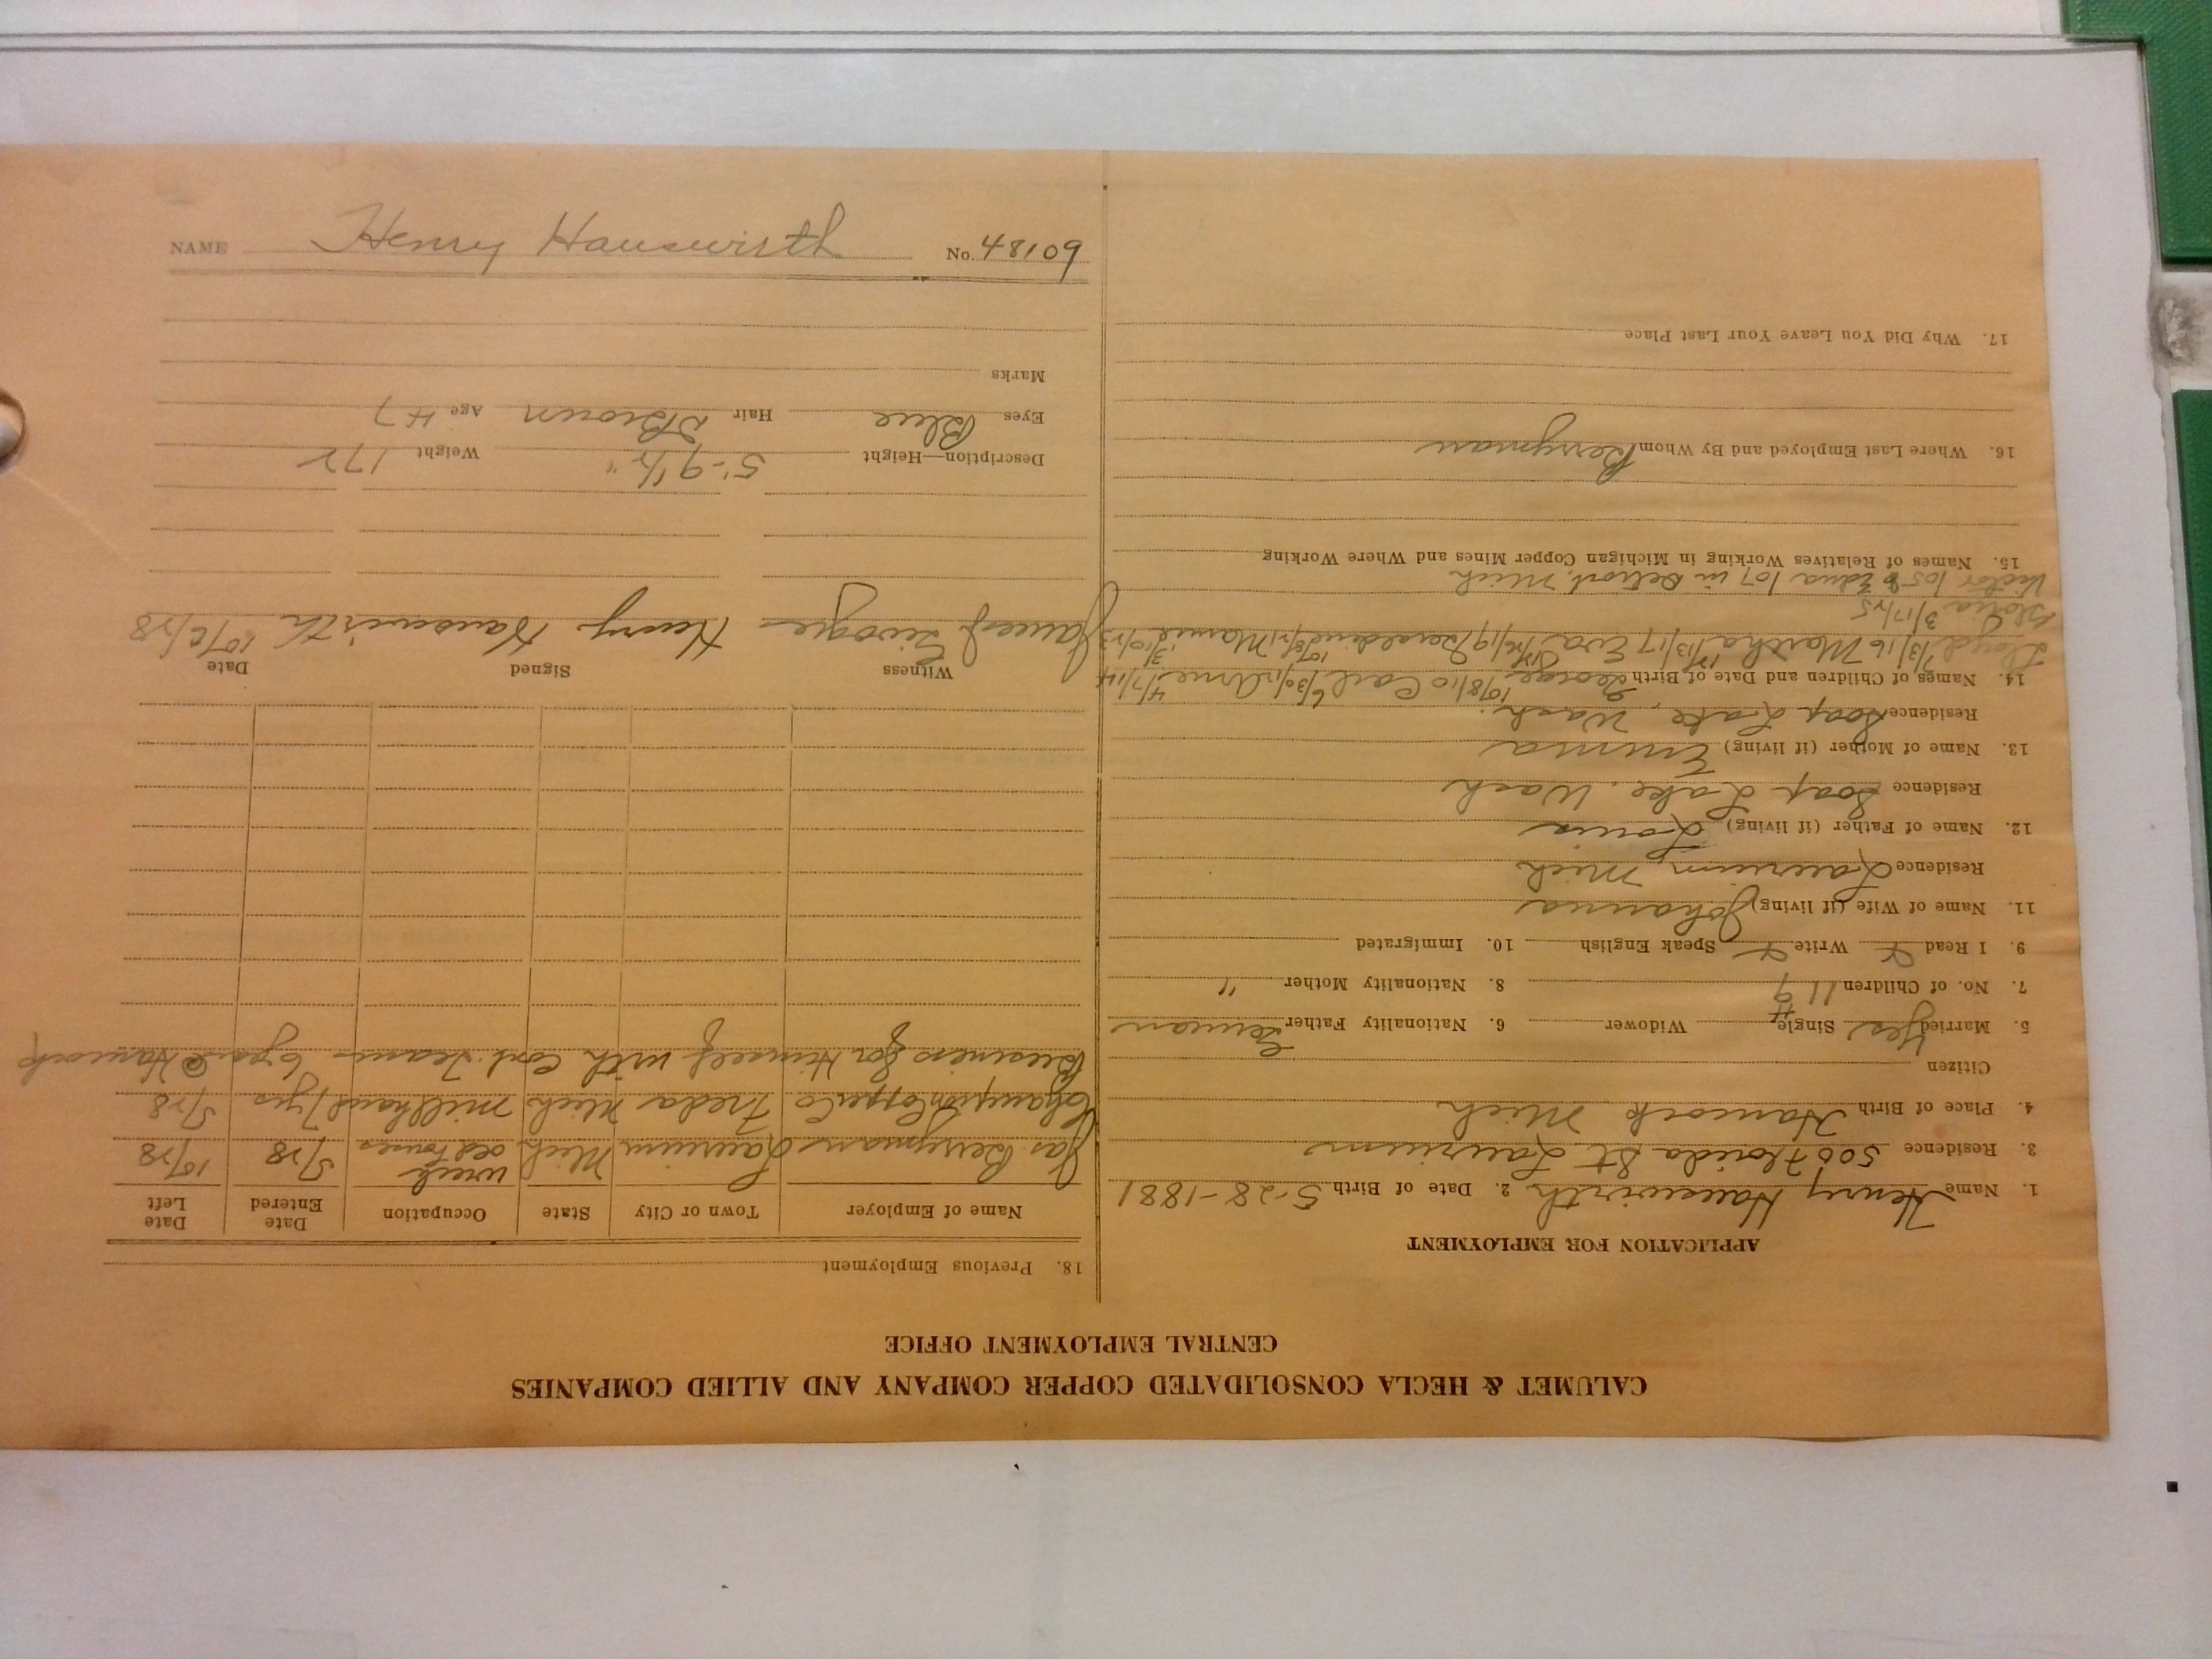 CALUMET & HECLA CONSOLIDATED COPPER COMPANY AND ALLIED COMPANIES
CENTRAL EMPLOYMENT OFFICE
APPLICATION FOR EMPLOYMENT
1. Name Henry Hauswirth 2. Date of Birth 5-28-1881
3. Residence 500 Florida St Laurium
4. Place of Birth Hancock Mich
Citizen
5. Married Yes Single Widower 6. Nationality Father German
7. No. of Children 11 9 8. Nationality Mother "
9. I Read Write Speak English 10. Immigrated
11. Name of Wife (if living) Johanna
Residence Laurium Mich
12. Name of Father (if living) Louis
Residence Soap Lake, Wash
13. Name of Mother (if living) Emma
Residence Soap Lake, Wash.
14. Names of Children and Date of Birth George 10/8/10 Carl 6/30/12 Arne 4/7/14
Lloyd 7/3/16 Martha 12/13/17 Eva Geraldine 10/8/21 Mamie 3/10/23
Gloria 3/17/25
Victor Edna 107 in Detroit, Mich
15. Names of Relatives Working in Michigan Copper Mines and Where Working
16. Where Last Employed and By Whom Berryman
17. Why Did You Leave Your Last Place
18. Previous Employment
Name of Employer Town or City State Occupation Date Entered Date Left
Jas. Berryman Laurium Mich wreck old houses 5/28 10/28
Champion Copper Co Freda Mich millhand 1 yr 5/28
Business for Himself with Cont. Teams 6 years @ Hancock
Witness Signed Date
James Henry Hauswirth 10/2/28
Description—Height 5'-9 1/2" Weight 172
Eyes Blue Hair D Brown Age 47
Marks
NAME Henry Hauswirth No. 48109